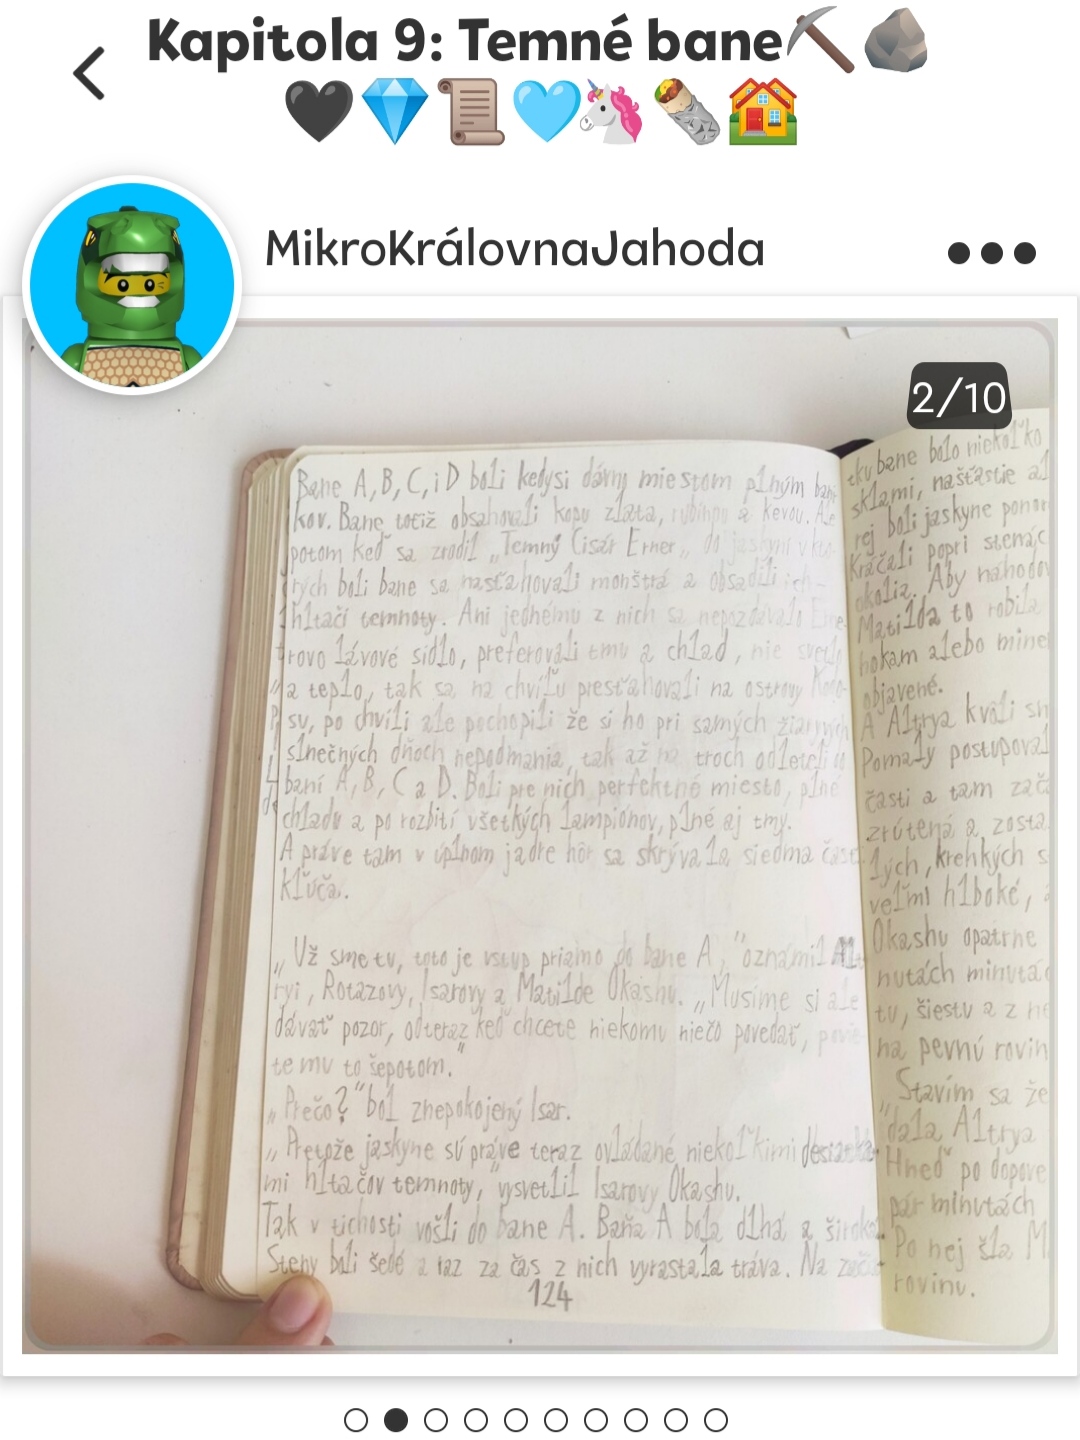 Kapitola 9: Temné bane
MikroKrálovnaJahoda
2/10
Bane A, B, C, i D boli kedysi dávny miestom plným baní-
kov. Bane totiž obsahovali kopu zlata, rubínov a kovov. Ale
potom keď sa zrodil „Temný Cisár Erner„ do jaskyní v kto-
rých boli bane sa nasťahovali monštrá a obsadili ich
hltačí temnoty. Ani jednému z nich sa nepozdávalo Erne-
rovo lávové sídlo, preferovali tmu a chlad, nie svetlo
a teplo, tak sa na chvíľu presťahovali na ostrovy
su, po chvíli ale pochopili že si ho pri samých žiarivých
slnečných dňoch nepodmania, tak až na troch odleteli do
baní A, B, C a D. Boli pre nich perfektné miesto, plné
chladu a po rozbití všetkých lampiónov, plné aj tmy.
A práve tam v úplnom jadre hôr sa skrývala siedma časť
kľúča.
„Už sme tu, toto je vstup priamo do bane A," oznámil Alt-
ryi, Rotazovy, Isarovy a Matilde Okashu. „Musíme si ale
dávať pozor, odteraz keď chcete niekomu niečo povedať, povie-
te mu to šepotom."
„Prečo?" bol znepokojený Isar.
„Pretože jaskyne sú práve teraz ovládané niekoľkimi desiatka-
mi hltačov temnoty," vysvetlil Isarovy Okashu.
Tak v tichosti vošli do bane A. Baňa A bola dlhá a široká.
Steny boli šedé a raz za čas z nich vyrastala tráva. Na začia-
124
tku bane bolo niekoľko
sklami, našťastie al
rej boli jaskyne ponor
Kráčali popri stenác
okolia. Aby náhodov
Matilda to robila
hokam alebo mine
objavené.
A Altrya kvôli sn
Pomaly postupoval
časti a tam zača
zrútená a zosta
lých, krehkých s
veľmi hlboké, a
Okashu opatrne
nutách minutác
tu, šiestu a z ne
na pevnú rovin
„Stavím sa že
dala Altrya
Hneď po dopove
pár minutách
Po nej šla M
rovinu.